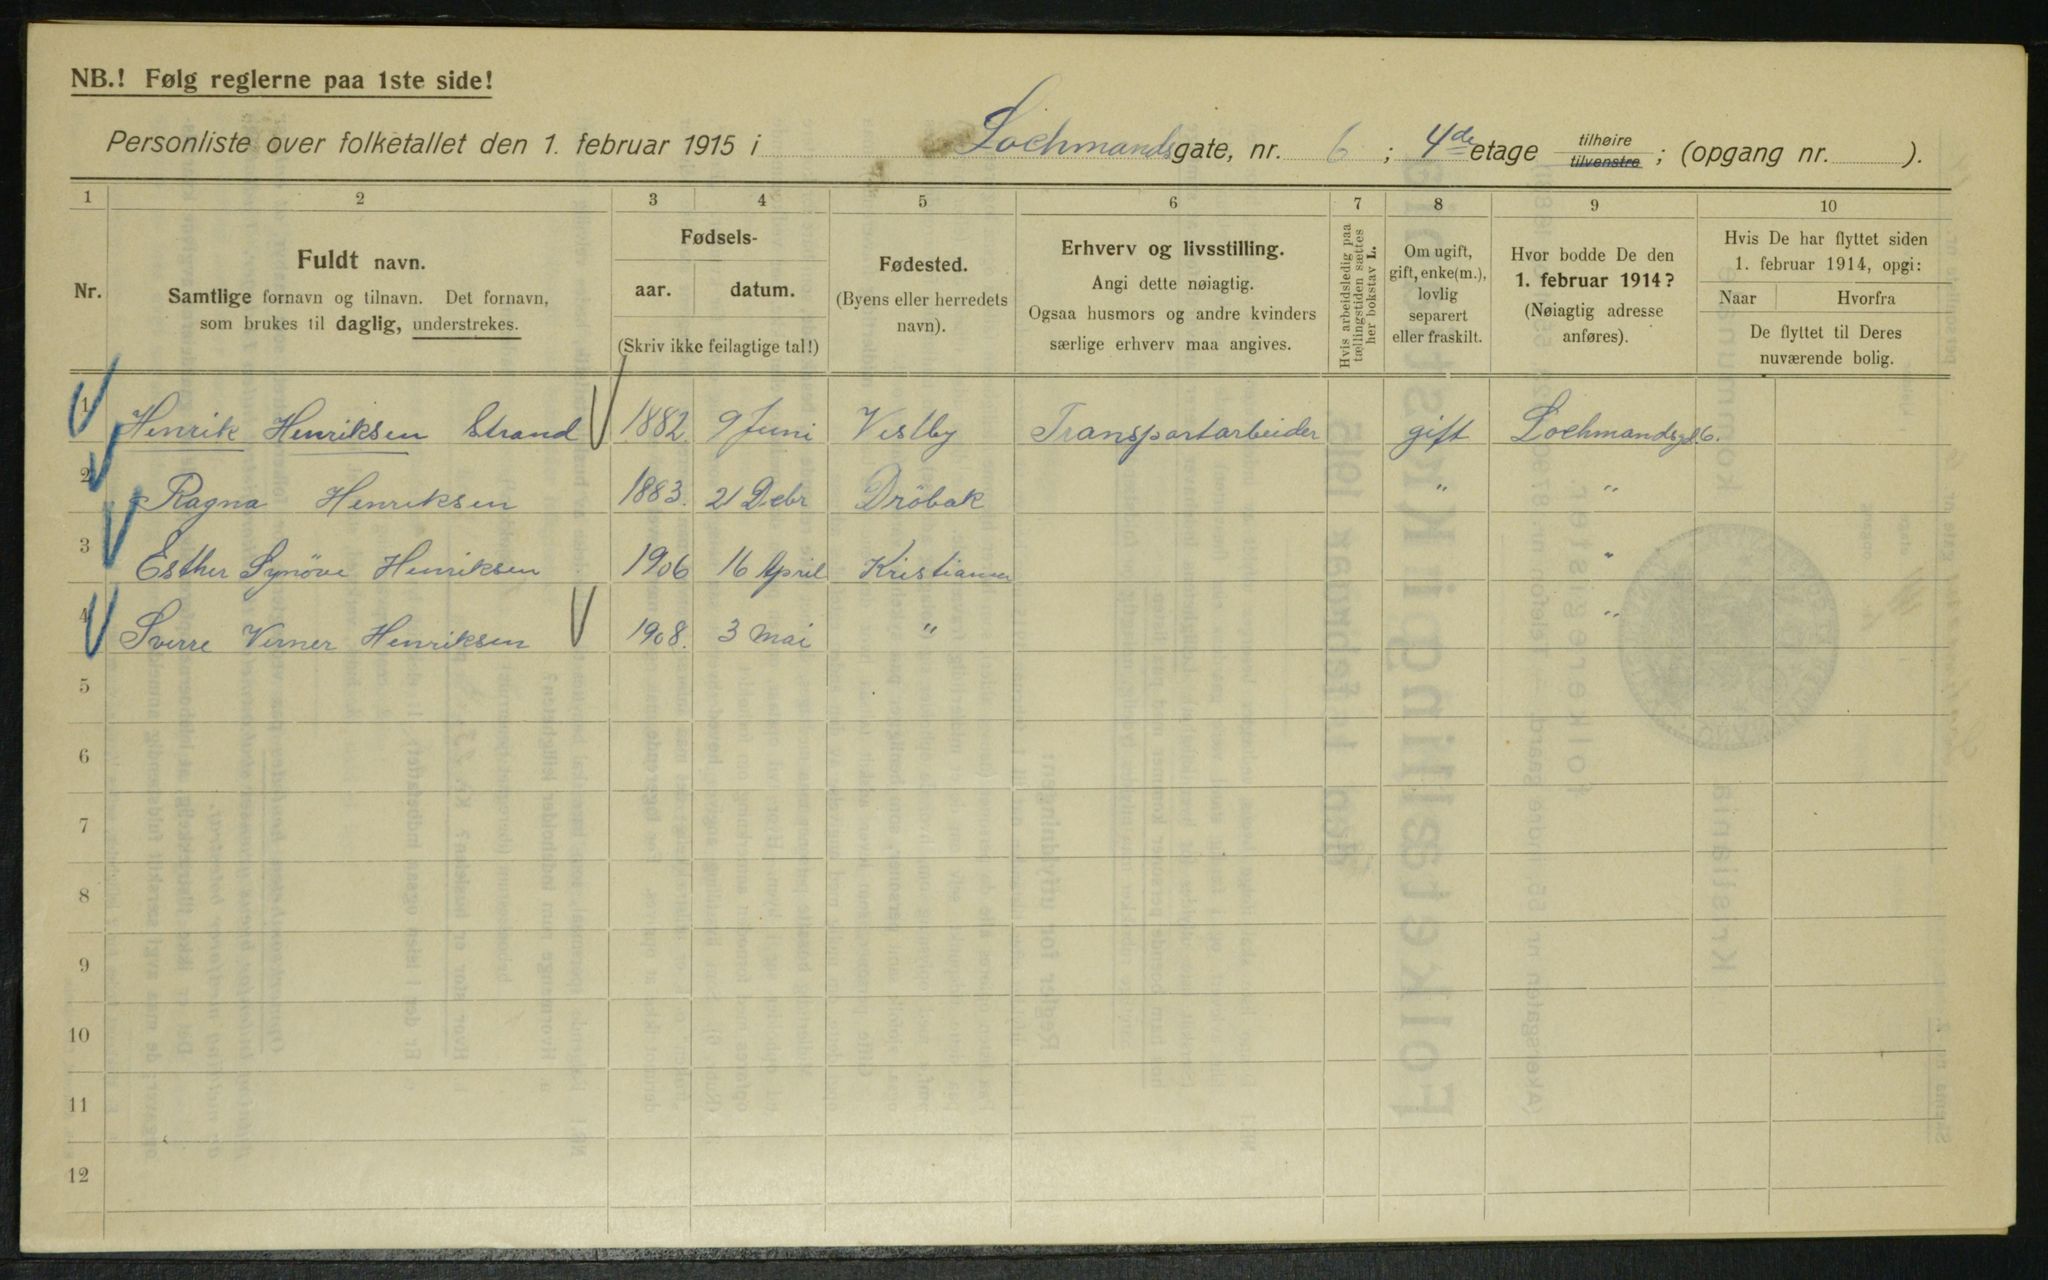 NB.! Følg reglerne paa 1ste side!
Personliste over folketallet den 1. februar 1915 i Lochmandsgate, nr. 6 ; 4de etage tilhøire tilvenstre ; (opgang nr. ).
1 2 3 4 5 6 7 8 9 10
Nr.
Fuldt navn.
Samtlige fornavn og tilnavn. Det fornavn,
som brukes til daglig, understrekes.
Fødsels-
aar. datum.
(Skriv ikke feilagtige tal!)
Fødested.
(Byens eller herredets
navn).
Erhverv og livsstilling.
Angi dette nøiagtig.
Ogsaa husmors og andre kvinders
særlige erhverv maa angives.
Hvis arbeidsledig paa
tællingstiden sættes
her bokstav L.
Om ugift,
gift, enke(m.),
lovlig
separert
eller fraskilt.
Hvor bodde De den
1. februar 1914?
(Nøiagtig adresse
anføres).
Hvis De har flyttet siden
1. februar 1914, opgi:
Naar Hvorfra
De flyttet til Deres
nuværende bolig.
1 Henrik Henriksen Strand 1882 9 Juni Vestby Transportarbeider gift Lochmandsgd. 6.
2 Ragna Henriksen 1883. 21 Debr Dröbak " "
3 Esther Synöve Henriksen 1906 16 April Kristiania "
4 Sverre Verner Henriksen 1908. 3 Mai " "
5
6
7
8
9
10
11
12